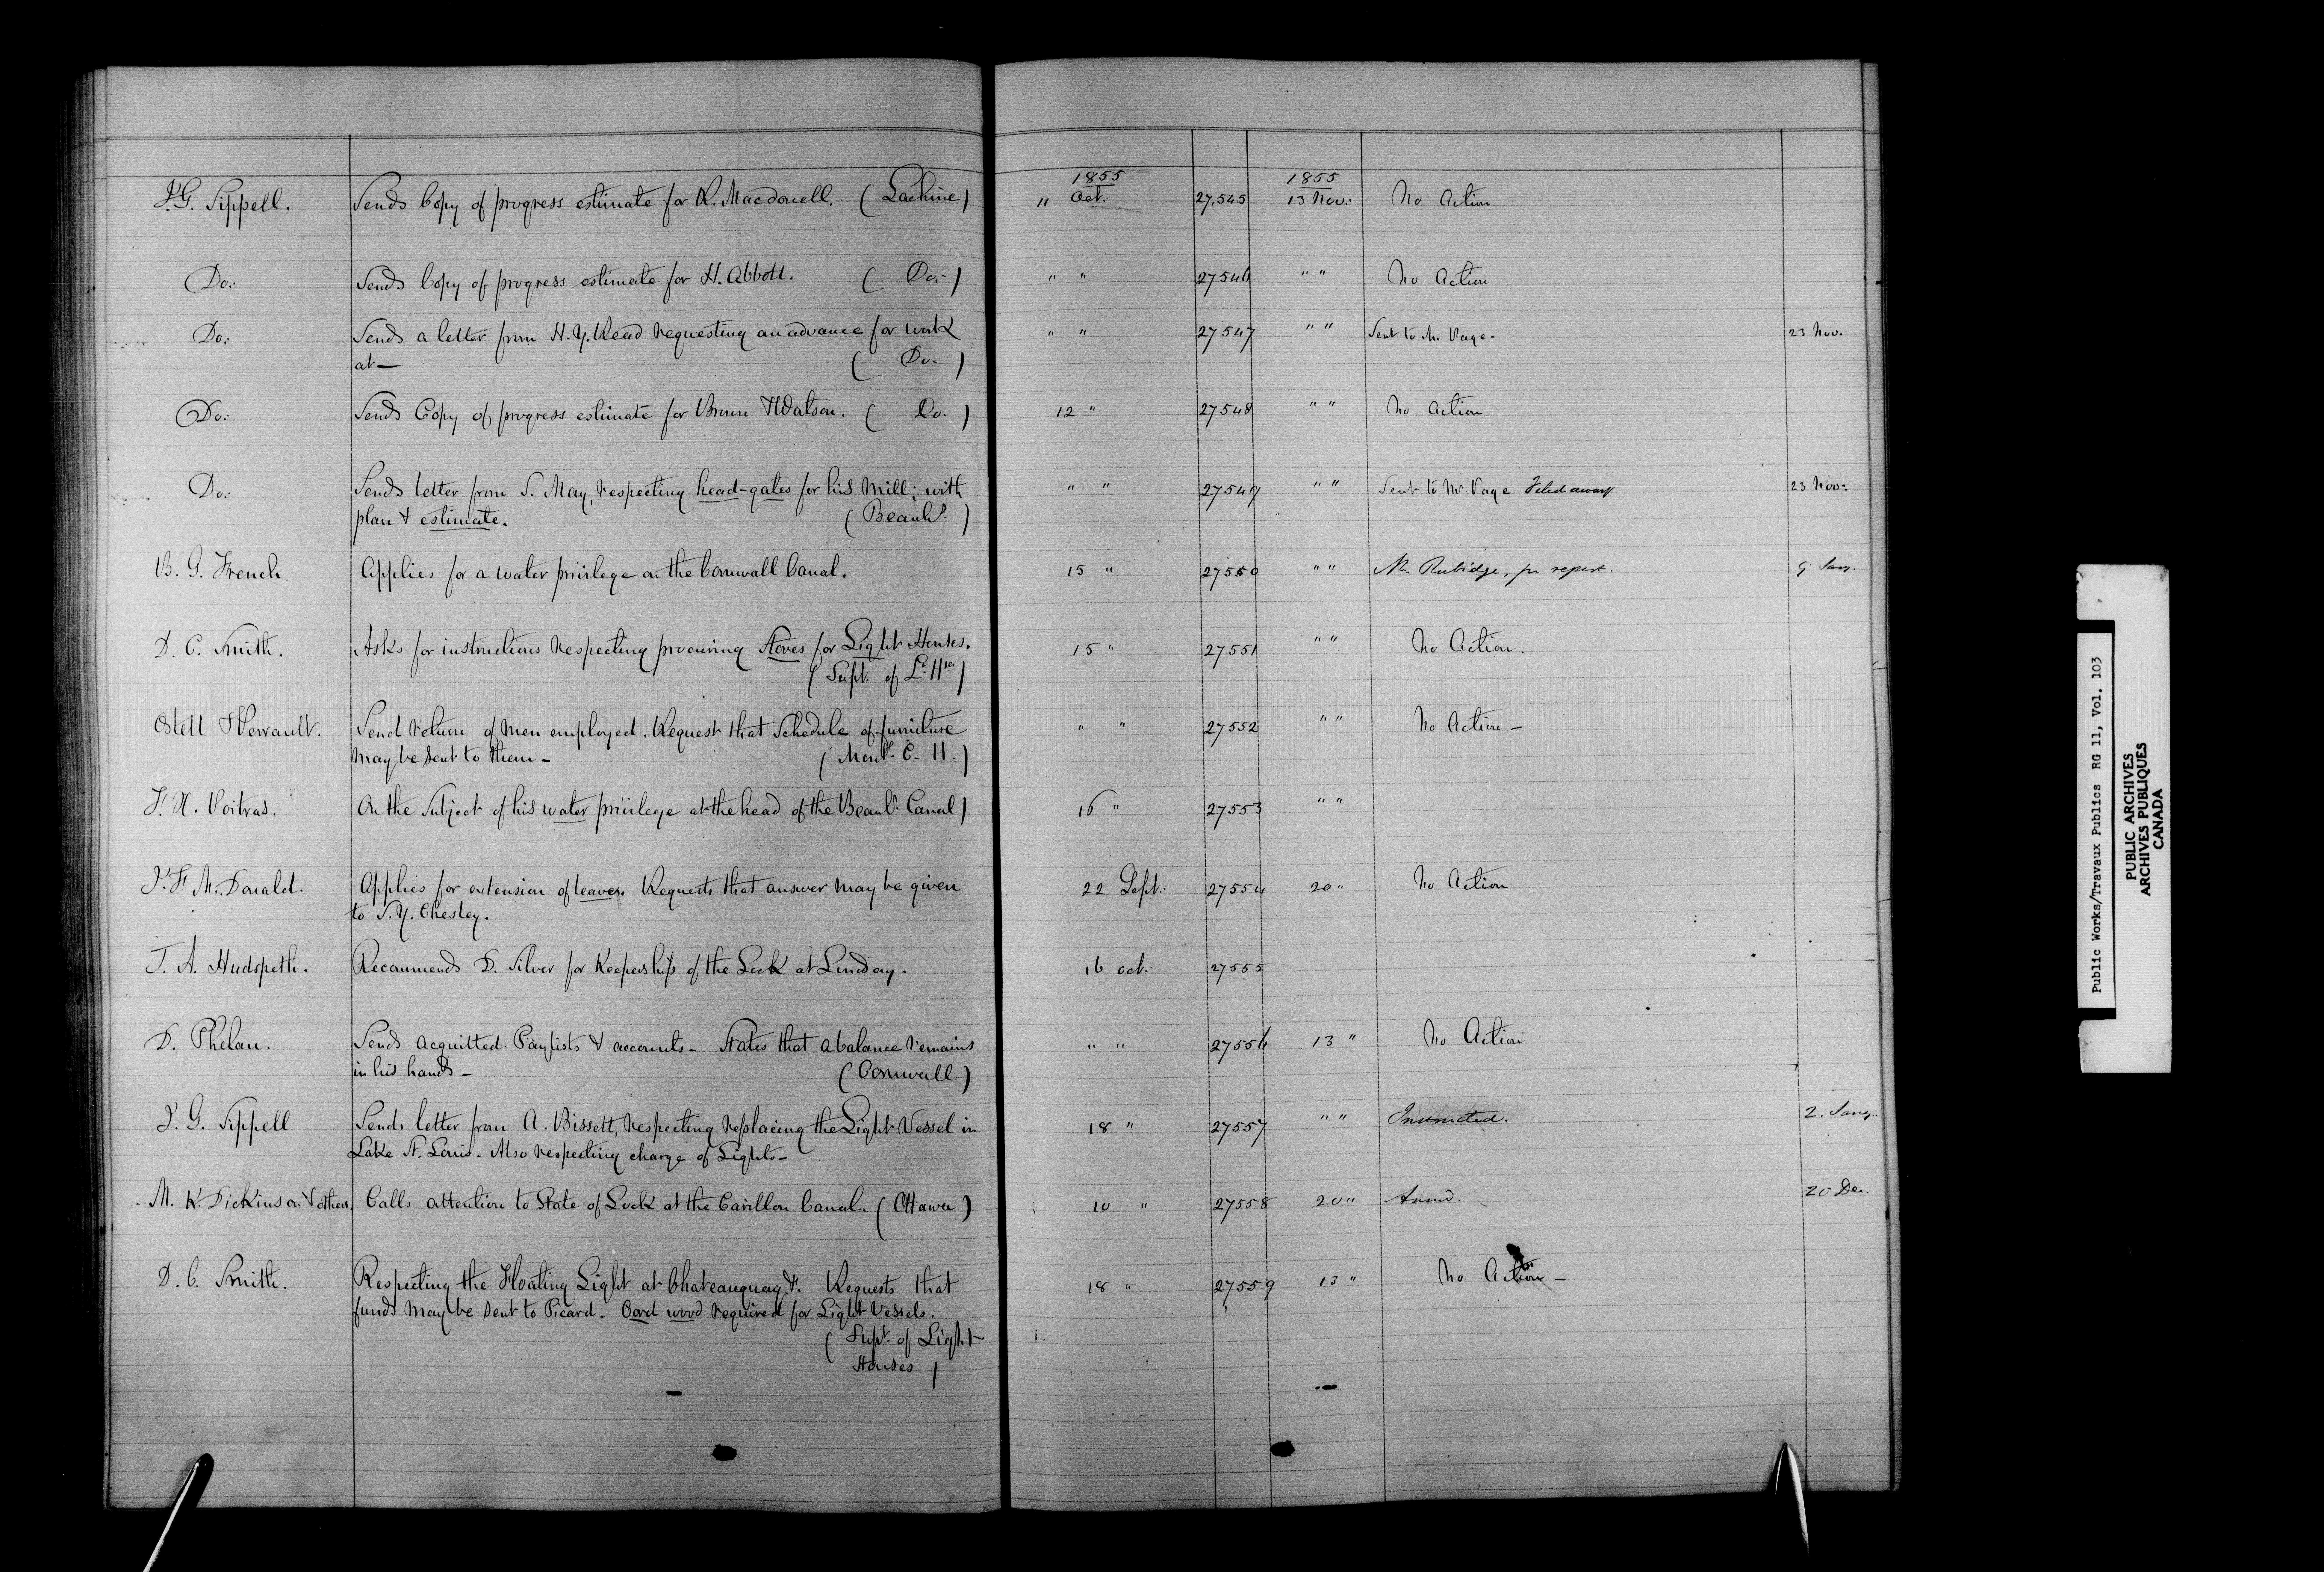 1855 1855
J. G. Sippell. Sends Copy of progress estimate for R. Macdonell. (Lachine) 11 Oct. 27,545 13 Nov. No Action
Do. Sends Copy of progress estimate for H. Abbott. (Do.) " " 27546 " " No Action
Do. Sends a letter from H. Y. Read requesting an advance for work " " 27547 " " Sent to Mr. Page. 23 Nov.
at — (Do.)
Do. Sends Copy of progress estimate for Brown & Watson. (Do.) 12 " 27548 " " No Action
Do. Sends letter from S. May, respecting head-gates for his Mill; with " " 27549 " " Sent to Mr. Page Filed away 23 Nov.
plan & estimate. (Beauhs.)
B. G. French. Applies for a water privilege on the Cornwall Canal. 15 " 27550 " " Mr. Rubidge, for report. 9 Jany.
D. C. Smith. Asks for instructions respecting procuring Stoves for Light Houses. 15 " 27551 " " No Action.
(Supt. of Lt. Hses)
Ostell & Perrault. Send return of men employed. Request that Schedule of furniture " " 27552 " " No Action –
may be sent to them – (Montl. C. H.)
F. X. Poitras. On the Subject of his water privilege at the head of the Beauhs. Canal) 16 " 27553 " "
J. F. McDonald. Applies for extension of leave. Requests that answer may be given 22 Sept. 27554 20 " No Action
to S. Y. Chesley.
T. A. Hudspeth. Recommends D. Silver for Keepership of the Lock at Lindsay. 16 Oct. 27555
D. Phelan. Sends acquitted Paylists & accounts – States that a balance remains " " 27556 13 " No Action
in his hands – (Cornwall)
J. G. Sippell Sends letter from A. Bissett, respecting replacing the Light Vessel in 18 " 27557 " " Instructed. 2. Jany.
Lake St. Louis. Also respecting charge of Lights –
M. K. Dickinson & others. Calls attention to State of Lock at the Carillon Canal. (Ottawa) 10 " 27558 20 " Answd. 20 Dec.
D. C. Smith. Respecting the Floating Light at Chateauguay, &. Requests that 18 " 27559 13 " No Action –
funds may be sent to Picard. Cord wood required for Light Vessels.
(Supt. of Light
Houses)
Public Works/Travaux Publics RG 11, Vol. 103
PUBLIC ARCHIVES
ARCHIVES PUBLIQUES
CANADA